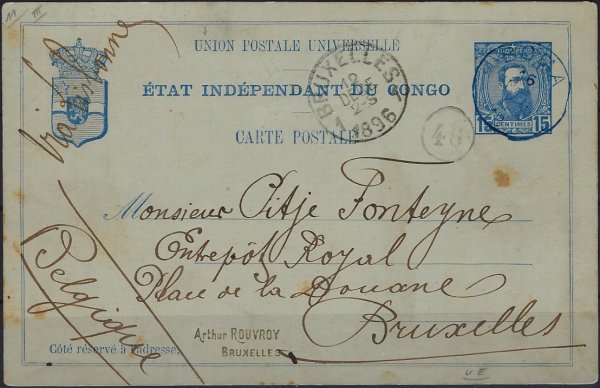 UNION POSTALE UNIVERSELLE
ÉTAT INDÉPENDANT DU CONGO
CARTE POSTALE
BRUXELLES
1896
46
15 CENTIMES 15
Via Lisbonne
Monsieur Pitje Fonteyne
Entrepôt Royal
Place de la Douane
Bruxelles
Belgique
Arthur ROUVROY
BRUXELLES
Côté réservé à l'adresse.